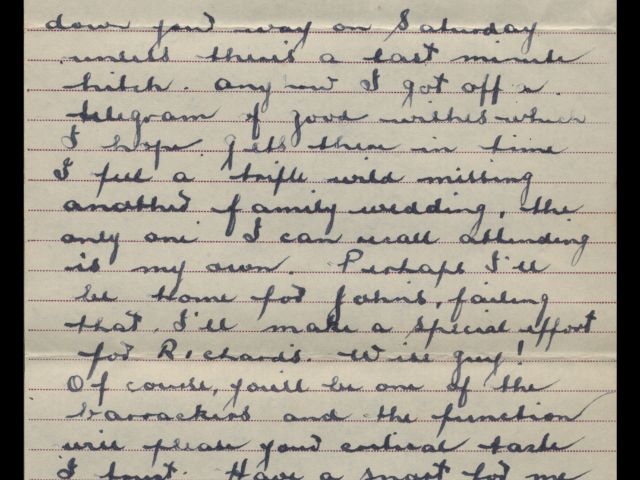 down your way on Saturday
unless there's a last minute
hitch. anyhow I got off a
telegram of good wishes which
I hope gets there in time
I feel a trifle wild missing
another family wedding, the
only one I can recall attending
is my own. Perhaps I'll
be home for John's, failing
that, I'll make a special effort
for Richard's. Wise guy!
Of course, you'll be one of the
barrackers and the function
will please your critical taste
I trust. Have a snort for me